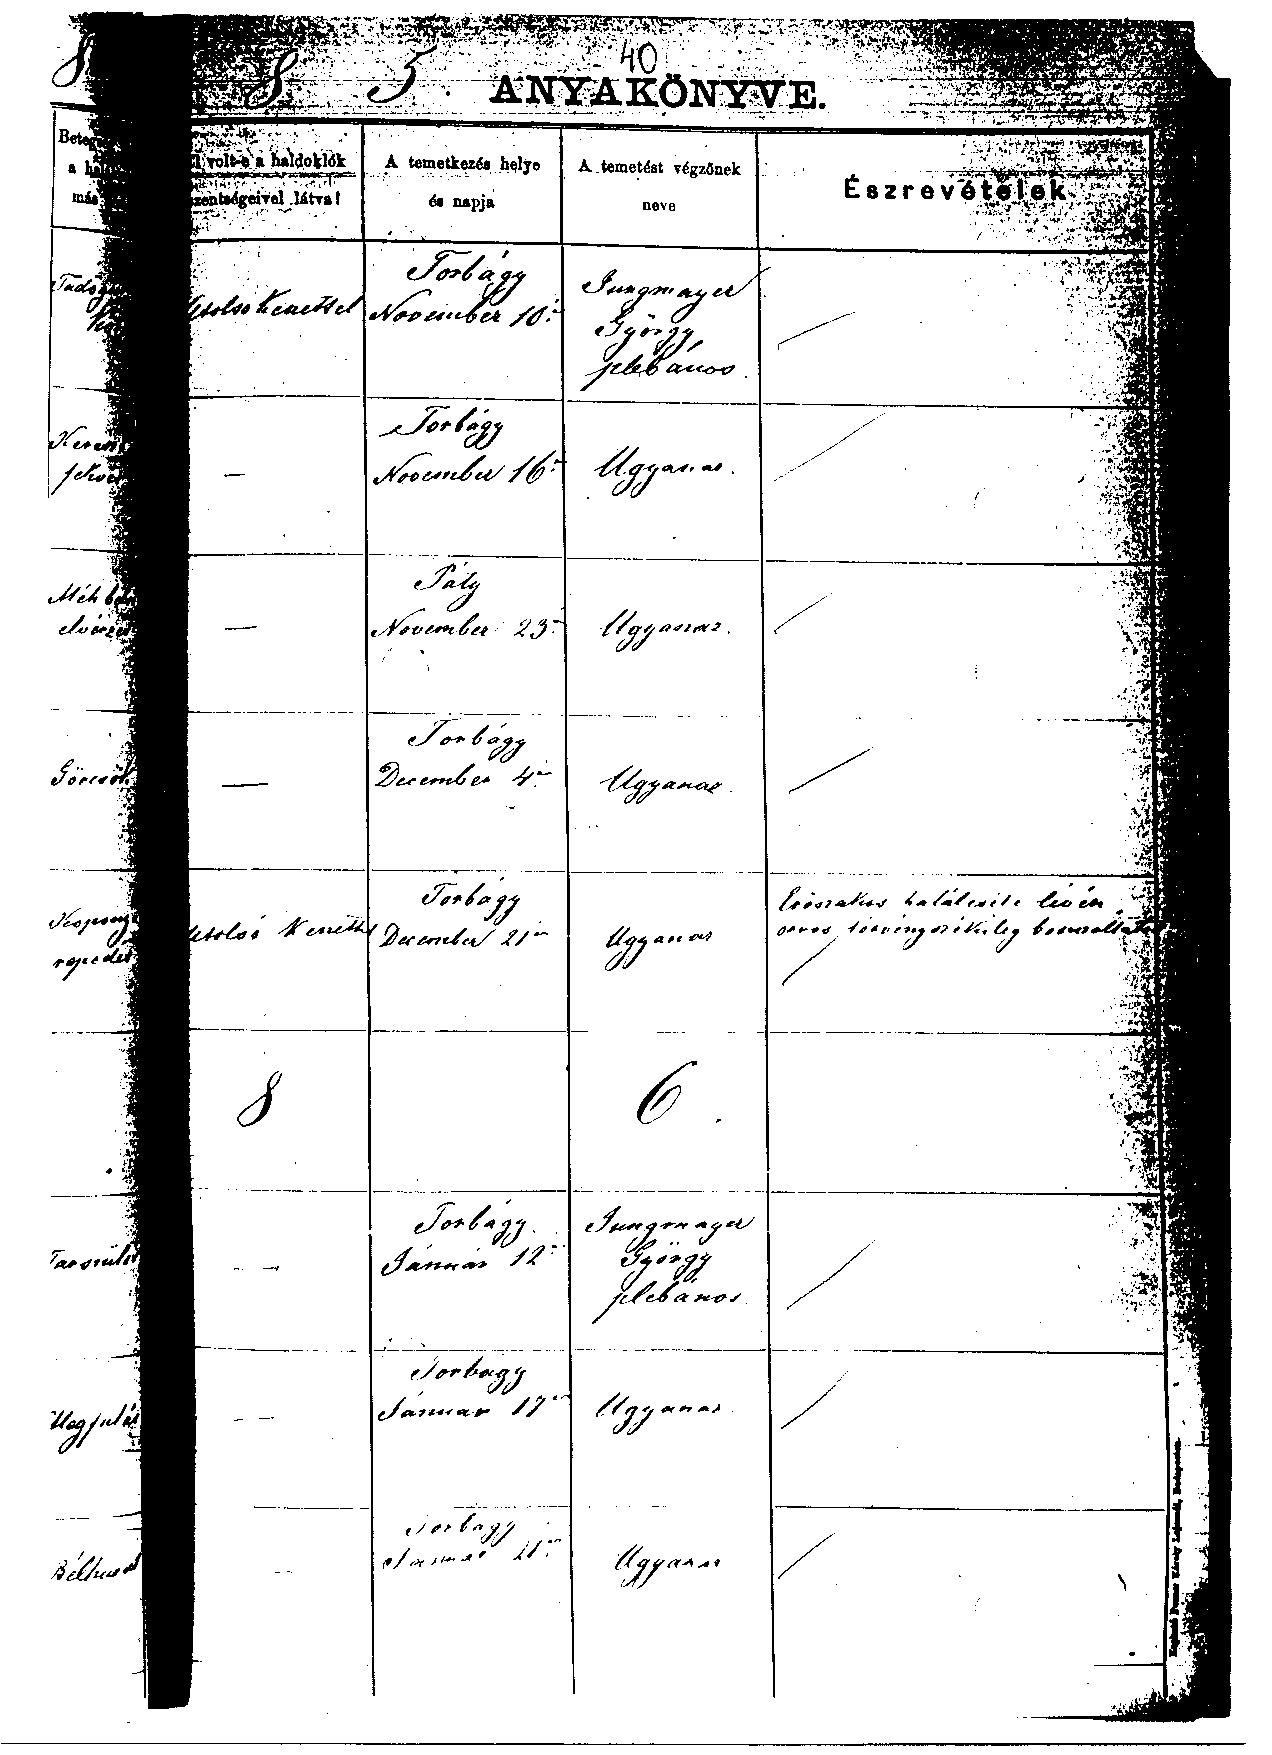 40
8 8 5. ANYAKÖNYVE.
volt-e a haldoklók
szentségeivel látva?
A temetkezés helye
és napja
A temetést végzőnek
neve
Észrevételek
Torbágy
November 10-
Jungmayer
György
plebános
utolsó kenettel
Torbágy
November 16-
Ugyanaz.
—
Pály
November 23-
Ugyanaz.
—
Görcsök
—
Torbágy
December 4-
Ugyanaz.
repedés
utolsó kenettel
Torbágy
December 21-
Ugyanaz
Erőszakos halálesete lévén
orvos törvényszékileg bonczoltatott
8
6
Torbágy
Január 12-
Jungmayer
György
plebános
- -
Torbágy
Január 17-
Ugyanaz
- -
Bélhurut
Torbágy
Január 21-
Ugyanaz
- -